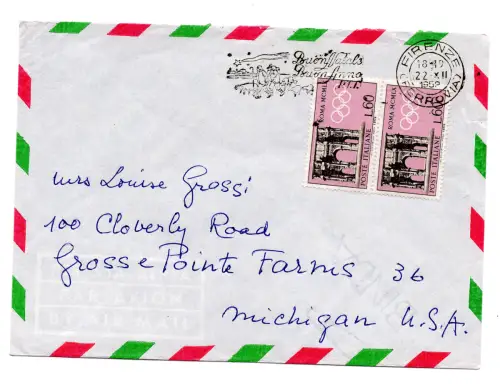 Buon Natale
Buon Anno
FIRENZE
18-19
22·XII
(FERROVIA)
ROMA MCMLX
L. 60
POSTE ITALIANE
ROMA MCMLX
L. 60
POSTE ITALIANE
Mrs Louise Grossi
100 Cloverly Road
Grosse Pointe Farms 36
Michigan U.S.A.